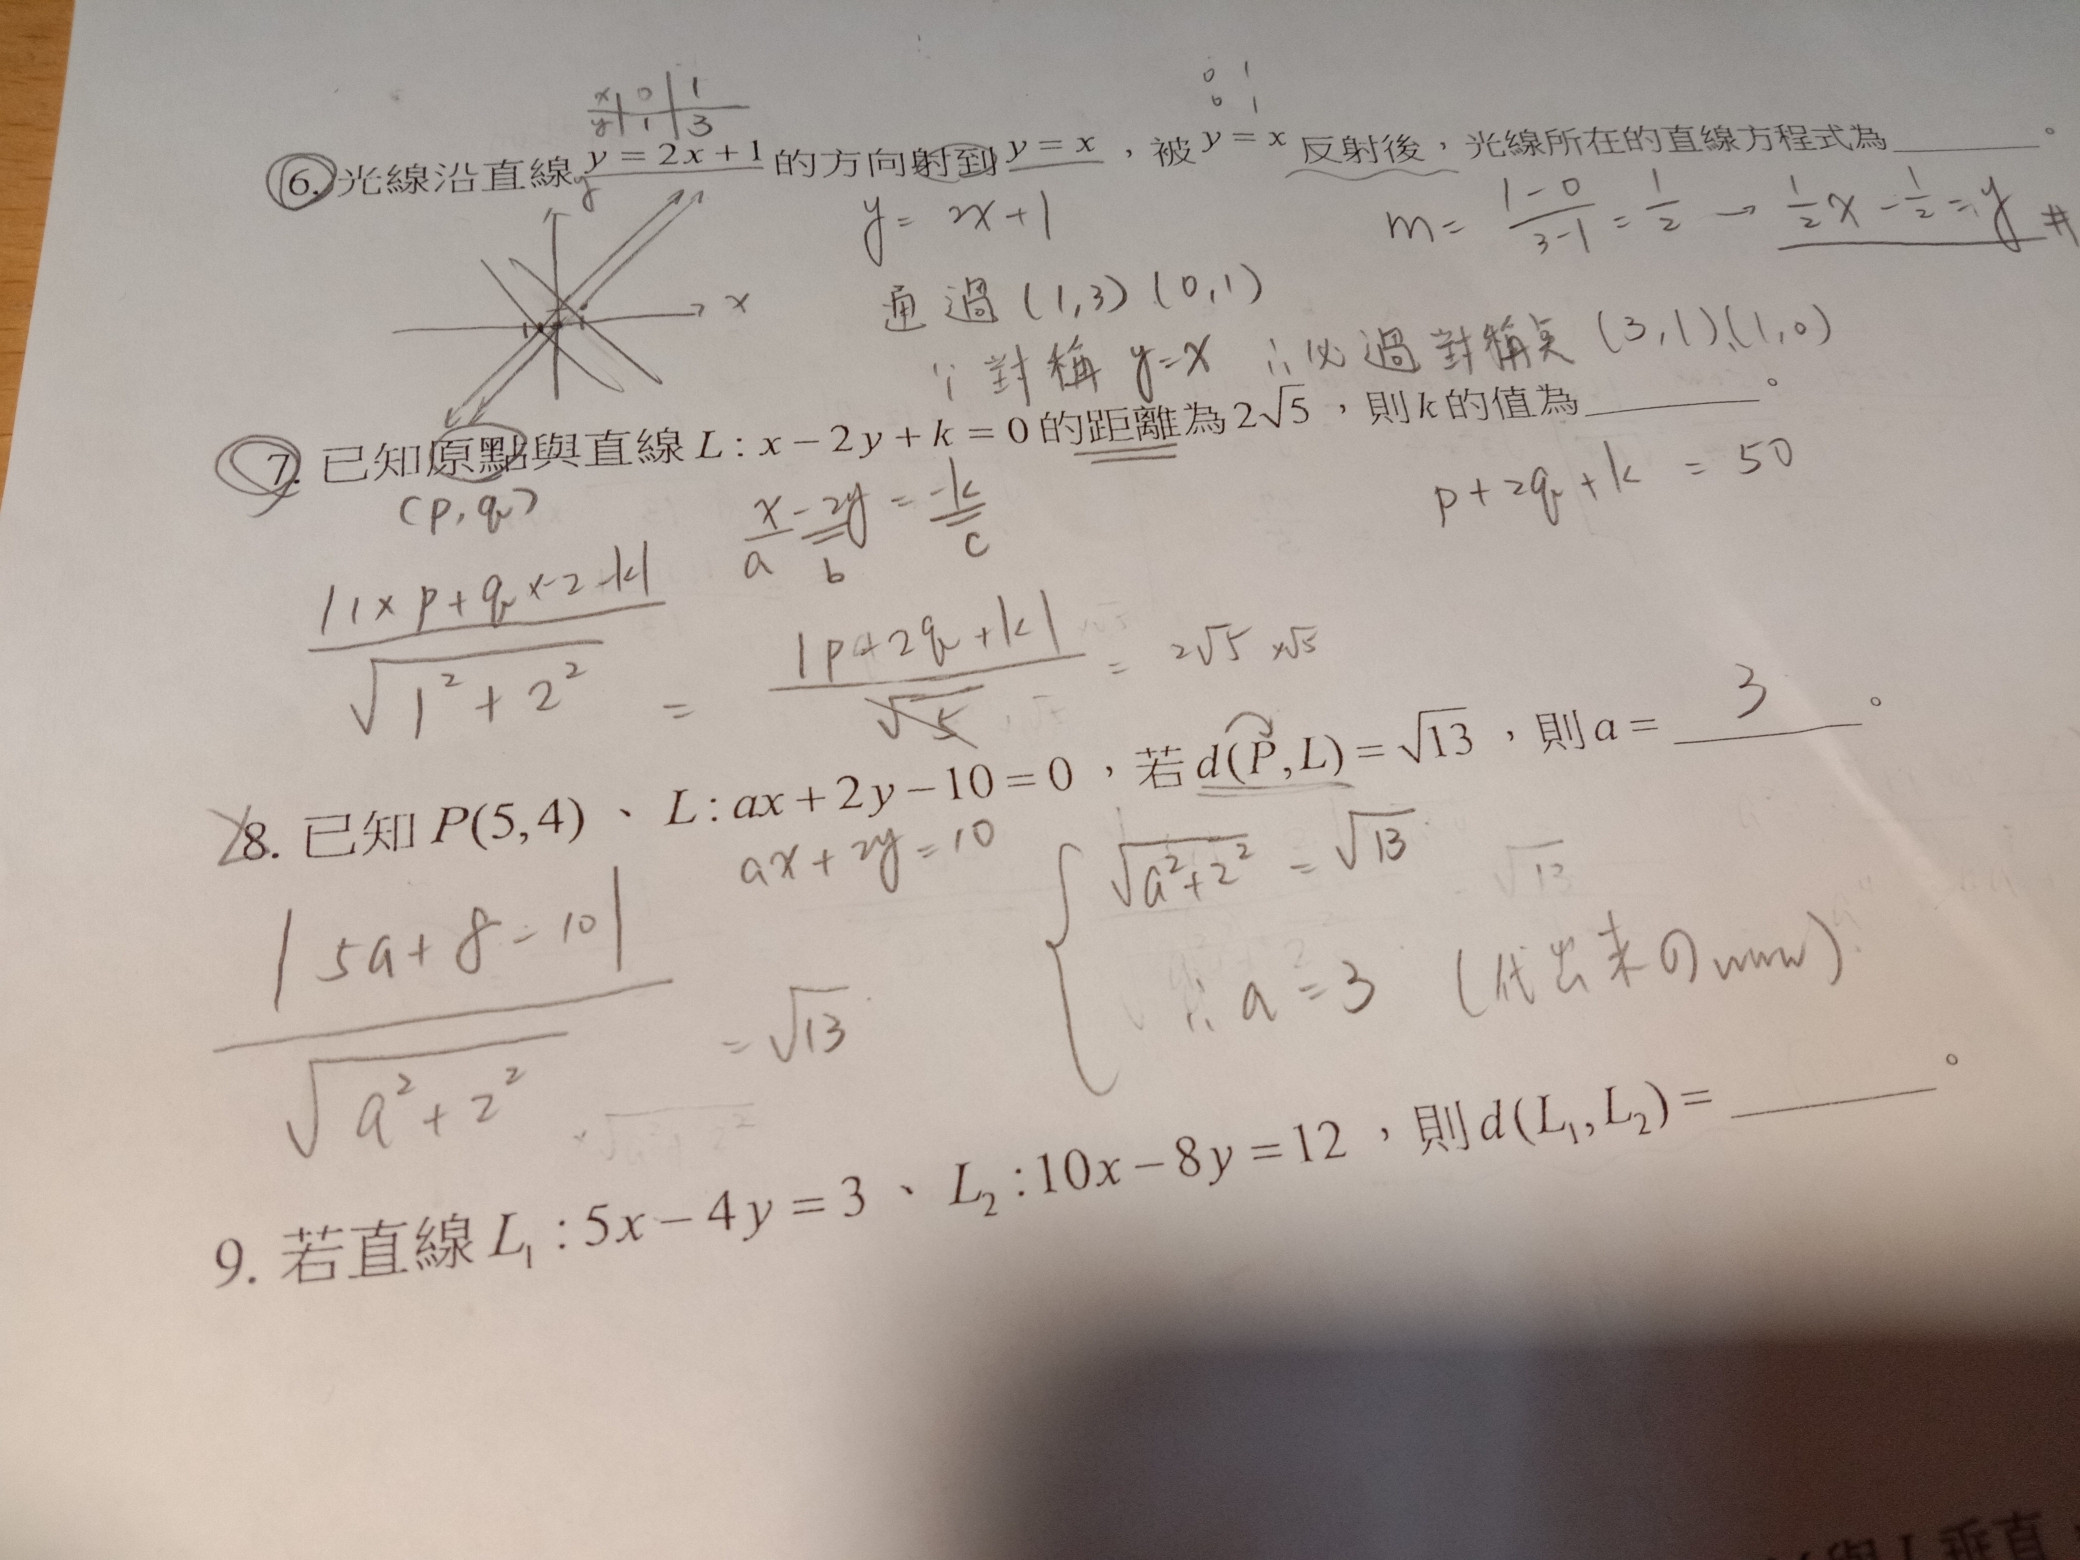 x 0 1
y 1 3
0 1
0 1
6. 光線沿直線 y = 2x + 1 的方向射到 y = x ，被 y = x 反射後，光線所在的直線方程式為＿＿＿＿。
y
x
1
1
y = 2x + 1
m = \frac{1-0}{3-1} = \frac{1}{2} → \frac{1}{2}x - \frac{1}{2} = y #
通過 (1,3) (0,1)
∵ 對稱 y=x ∴ 必過對稱點 (3,1)、(1,0)
7. 已知原點與直線 L : x − 2y + k = 0 的距離為 2√5 ，則 k 的值為＿＿＿＿。
(p, q)
x - 2y = -k
a b c
p + 2q + k = 50
\frac{|1×p+q×-2-k|}{\sqrt{1^2+2^2}} = \frac{|p+2q+k|}{\sqrt{5}} = 2√5 ×√5
8. 已知 P(5,4) 、 L : ax + 2y − 10 = 0 ，若 d(P, L) = √13 ，則 a = 3 。
ax + 2y = 10
\frac{|5a+8-10|}{\sqrt{a^2+2^2}} = √13
\sqrt{a^2+2^2} = √13
∴ a = 3 (代出來の www)
9. 若直線 L₁ : 5x − 4y = 3 、 L₂ : 10x − 8y = 12 ，則 d(L₁, L₂) = ＿＿＿＿。
與 L 垂直